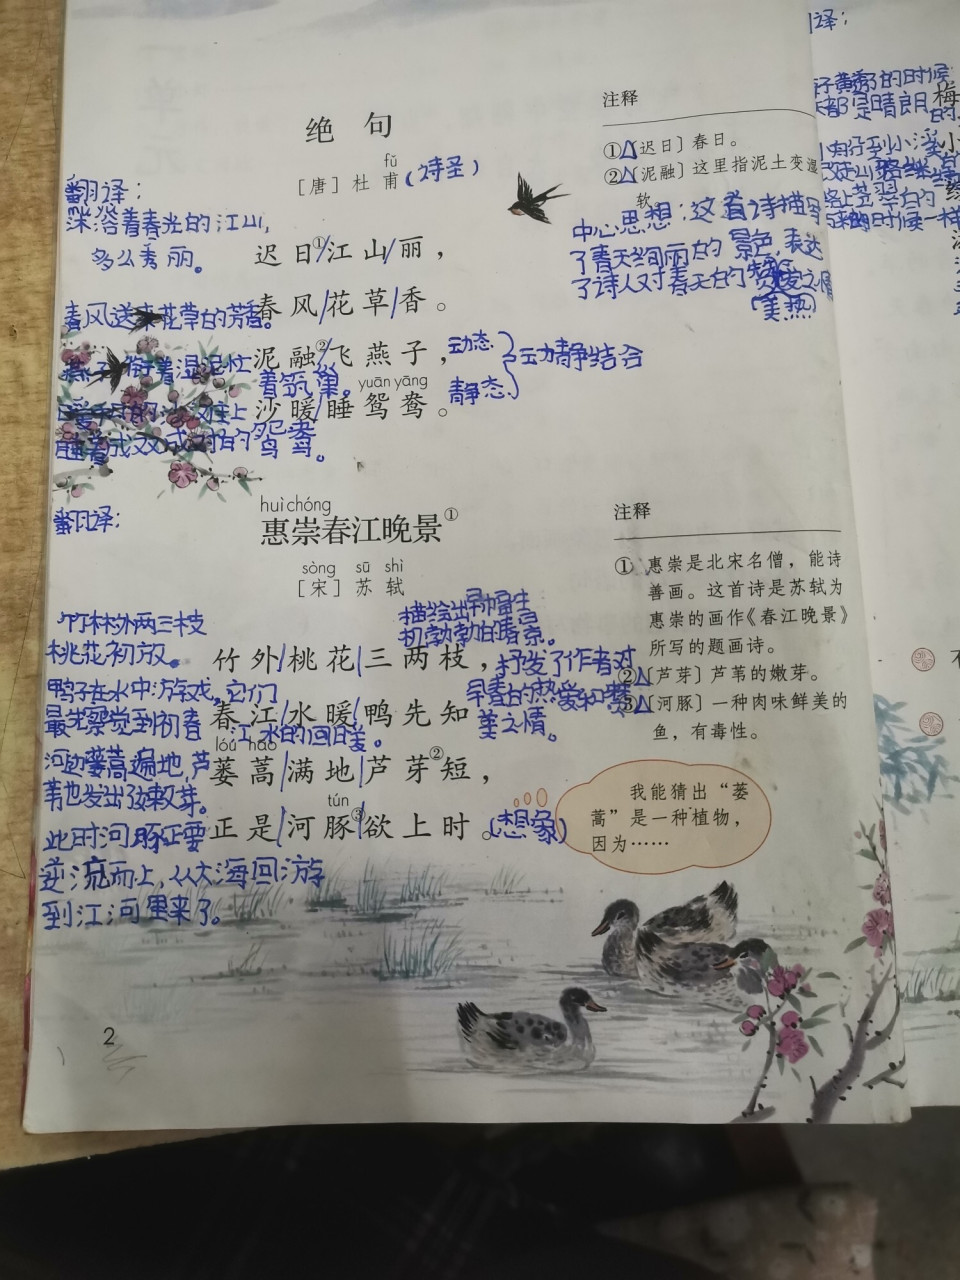 绝句
fǔ
［唐］杜甫(诗圣)
翻译：
沐浴着春光的江山，
多么秀丽。
迟日①/江山/丽，
春风送来花草的芳香。
春风/花草/香。
燕子衔着湿泥忙
着筑巢。
泥融②/飞燕子，
动态
静态
动静结合
yuān yāng
沙暖/睡鸳鸯。
睡着成双成对的鸳鸯。
注释
①［迟日］春日。
②［泥融］这里指泥土变湿
软。
中心思想：这首诗描写
了春天绚丽的景色，表达
了诗人对春天的热爱之情
huì chóng
惠崇春江晚景①
sòng sū shì
［宋］苏轼
翻译：
竹林外两三枝
桃花初放。
鸭子在水中游戏，它们
最先察觉到初春
江水的回暖。
河边蒌蒿遍地，芦
苇也发出了嫩芽。
此时河豚正要
逆流而上，从大海回游
到江河里来了。
描绘出一种寻
机勃勃的春景。
抒发了作者对
早春的热爱和赞
美之情。
竹外/桃花/三两枝，
春江/水暖/鸭先知。
lóu hāo
蒌蒿/满地/芦芽②短，
tún
正是/河豚③/欲上时。(想象)
注释
①惠崇是北宋名僧，能诗
善画。这首诗是苏轼为
惠崇的画作《春江晚景》
所写的题画诗。
②［芦芽］芦苇的嫩芽。
③［河豚］一种肉味鲜美的
鱼，有毒性。
我能猜出“蒌
蒿”是一种植物，
因为……
2
译：
的时候
都是晴朗